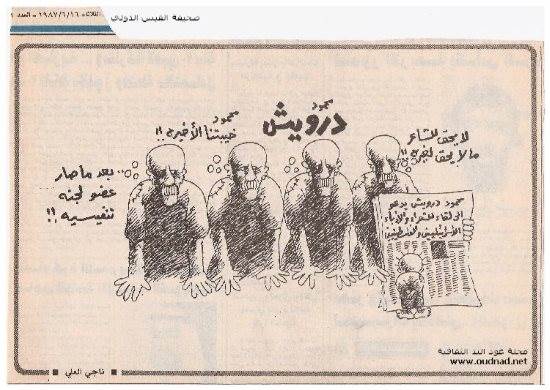 صحيفة القبس الدولي
الثلاثاء ١٩٨٧/٦/١٦ - العدد
لا يحق للشاعر
ما لا يحق لغيره !!
محمود
درويش
محمود
خيبتنا الأخيرة !!
.. بعد ما صار
عضو لجنه
تنفيسيه !!
محمود درويش يدعو
الى لقاء للشعراء والأدباء
الاسرائيليين والفلسطينيين
ناجي العلي
مجلة عود الند الثقافية
www.oudnad.net